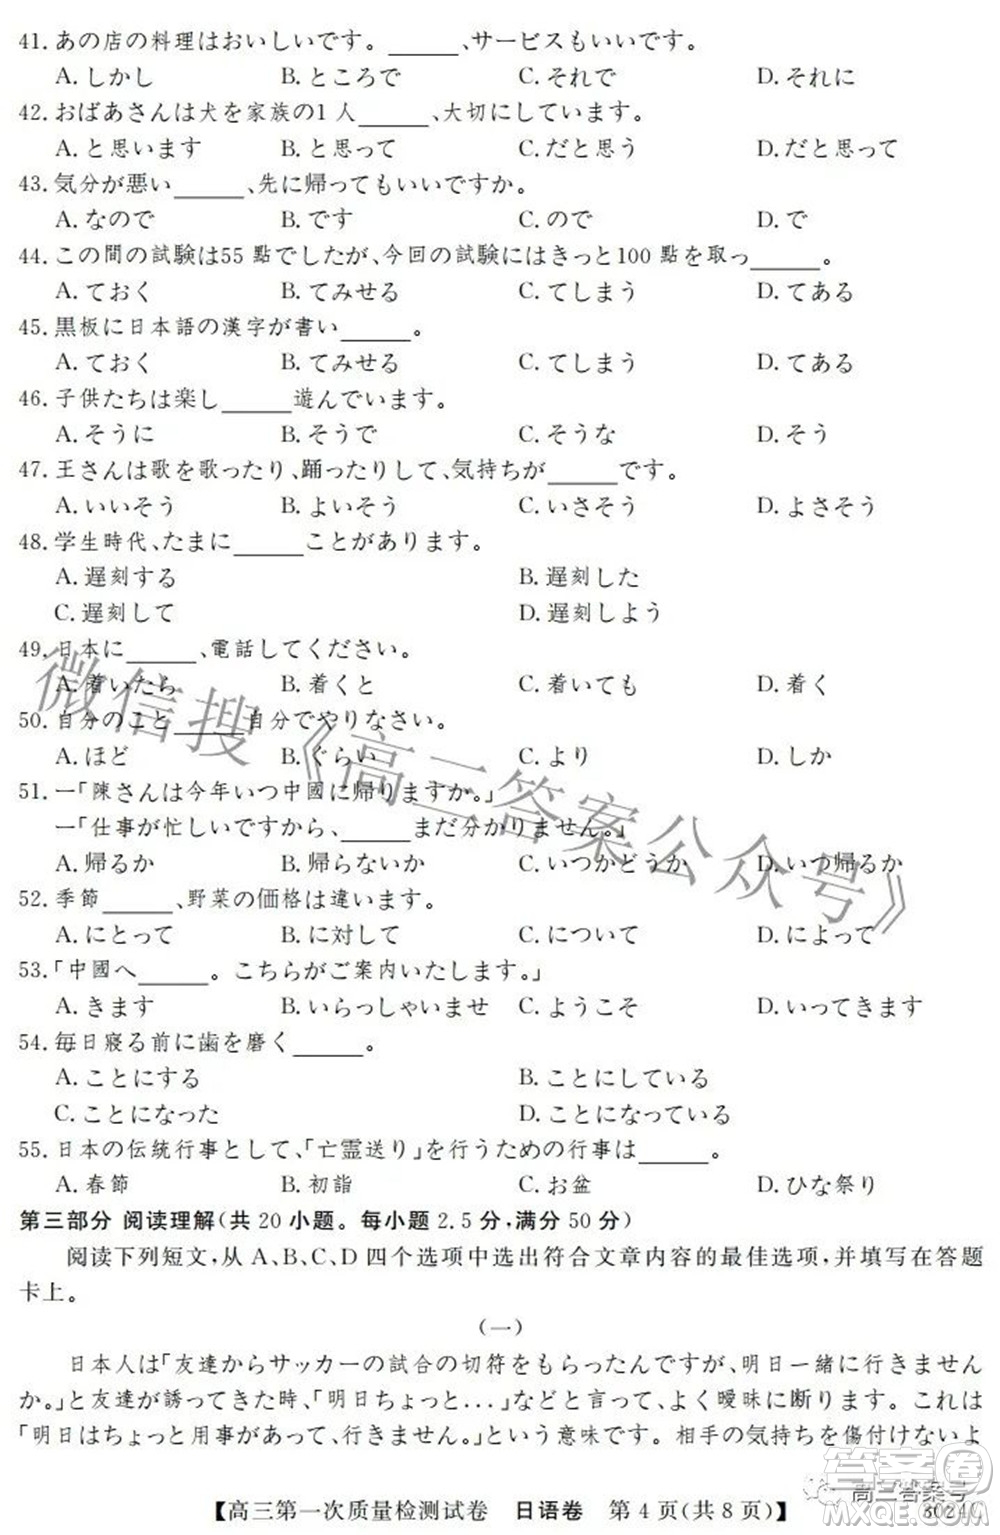 41. あの店の料理はおいしいです。______、サービスもいいです。
A. しかし B. ところで C. それで D. それに
42. おばあさんは犬を家族の1人______、大切にしています。
A. と思います B. と思って C. だと思う D. だと思って
43. 気分が悪い______、先に帰ってもいいですか。
A. なので B. です C. ので D. で
44. この間の試験は55點でしたが、今回の試験にはきっと100點を取っ______。
A. ておく B. てみせる C. てしまう D. てある
45. 黒板に日本語の漢字が書い______。
A. ておく B. てみせる C. てしまう D. てある
46. 子供たちは楽し______遊んでいます。
A. そうに B. そうで C. そうな D. そう
47. 王さんは歌を歌ったり、踊ったりして、気持ちが______です。
A. いいそう B. よいそう C. いさそう D. よさそう
48. 学生時代、たまに______ことがあります。
A. 遅刻する B. 遅刻した
C. 遅刻して D. 遅刻しよう
49. 日本に______、電話してください。
A. 着いたら B. 着くと C. 着いても D. 着く
50. 自分のこと______自分でやりなさい。
A. ほど B. ぐらい C. より D. しか
51. —「陳さんは今年いつ中國に帰りますか。」
—「仕事が忙しいですから、______まだ分かりません。」
A. 帰るか B. 帰らないか C. いつかどうか D. いつ帰るか
52. 季節______、野菜の価格は違います。
A. にとって B. に対して C. について D. によって
53. 「中國へ______。こちらがご案内いたします。」
A. きます B. いらっしゃいませ C. ようこそ D. いってきます
54. 毎日寝る前に歯を磨く______。
A. ことにする B. ことにしている
C. ことになった D. ことになっている
55. 日本の伝統行事として、「亡霊送り」を行うための行事は______。
A. 春節 B. 初詣 C. お盆 D. ひな祭り
第三部分 阅读理解(共 20 小题。每小题 2.5 分,满分 50 分)
阅读下列短文,从 A、B、C、D 四个选项中选出符合文章内容的最佳选项,并填写在答题
卡上。
(一)
日本人は「友達からサッカーの試合の切符をもらったんですが、明日一緒に行きません
か。」と友達が誘ってきた時、「明日ちょっと...」などと言って、よく曖昧に断ります。これは
「明日はちょっと用事があって、行けません。」という意味です。相手の気持ちを傷付けないよ
【高三第一次质量检测试卷 日语卷 第 4 页(共 8 页)】
3024C
微信搜《高三答案公众号》
高三答案号
答案圈
MXQE.COM